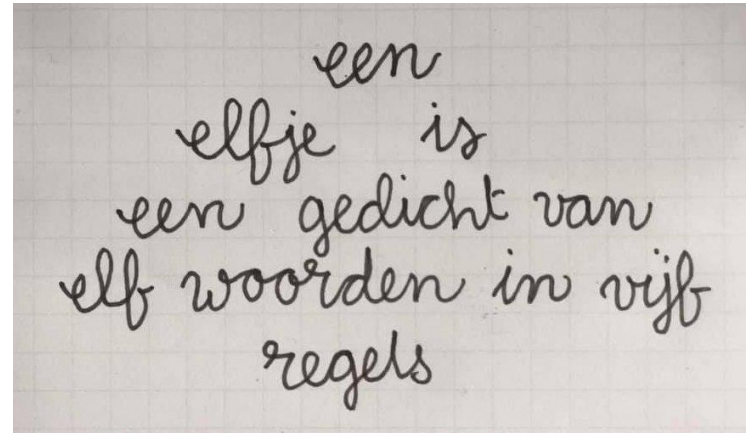 een
elfje is
een gedicht van
elf woorden in vijf
regels